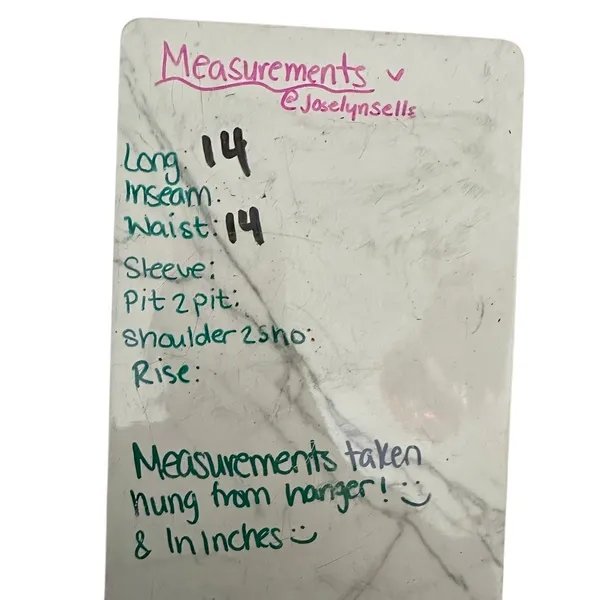 Measurements
@Joselynsells
Long: 14
Inseam:
Waist: 14
Sleeve:
Pit 2 pit:
Shoulder 2 sho:
Rise:
Measurements taken
hung from hanger! :)
& In Inches :)